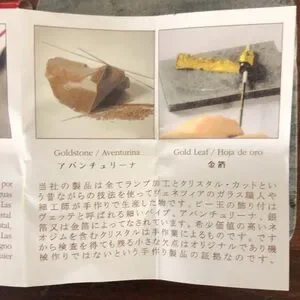 Goldstone / Aventurina
アバンチュリーナ
Gold Leaf / Hoja de oro
金箔
当社の製品は全てランプ加工とクリスタル・カットとい
う昔ながらの技法を使ってヴェネツィアのガラス職人や
細工師が手作りで生産した物です。ビー玉の飾り付は
ヴェッテと呼ばれる細いパイプ、アバンチュリーナ、銀
箔又は金箔によってなされています。希少価値の高いネ
オジムを含むクリスタルは手作業によるものです。です
から検査を得ても残る小さな欠点はオリジナルであり機
械作りではないという手作り製品の証拠なのです。
por
Las
Las